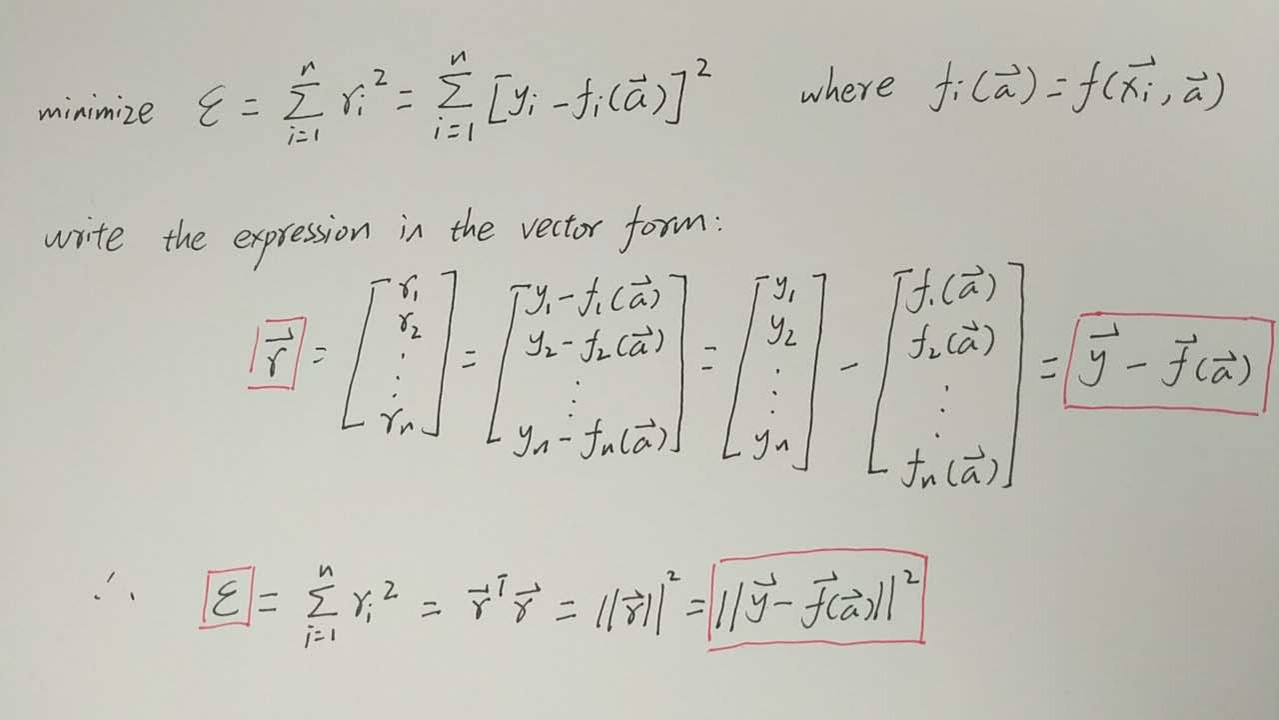 minimize ε = Σ_{i=1}^{n} r_i² = Σ_{i=1}^{n} [y_i - f_i(a⃗)]² where f_i(a⃗) = f(x⃗_i, a⃗)
write the expression in the vector form:
r⃗ = [r_1 r_2 ⋮ r_n] = [y_1 - f_1(a⃗) y_2 - f_2(a⃗) ⋮ y_n - f_n(a⃗)] = [y_1 y_2 ⋮ y_n] - [f_1(a⃗) f_2(a⃗) ⋮ f_n(a⃗)] = y⃗ - f⃗(a⃗)
∴ ε = Σ_{i=1}^{n} r_i² = r⃗ᵀ r⃗ = ||r⃗||² = ||y⃗ - f⃗(a⃗)||²